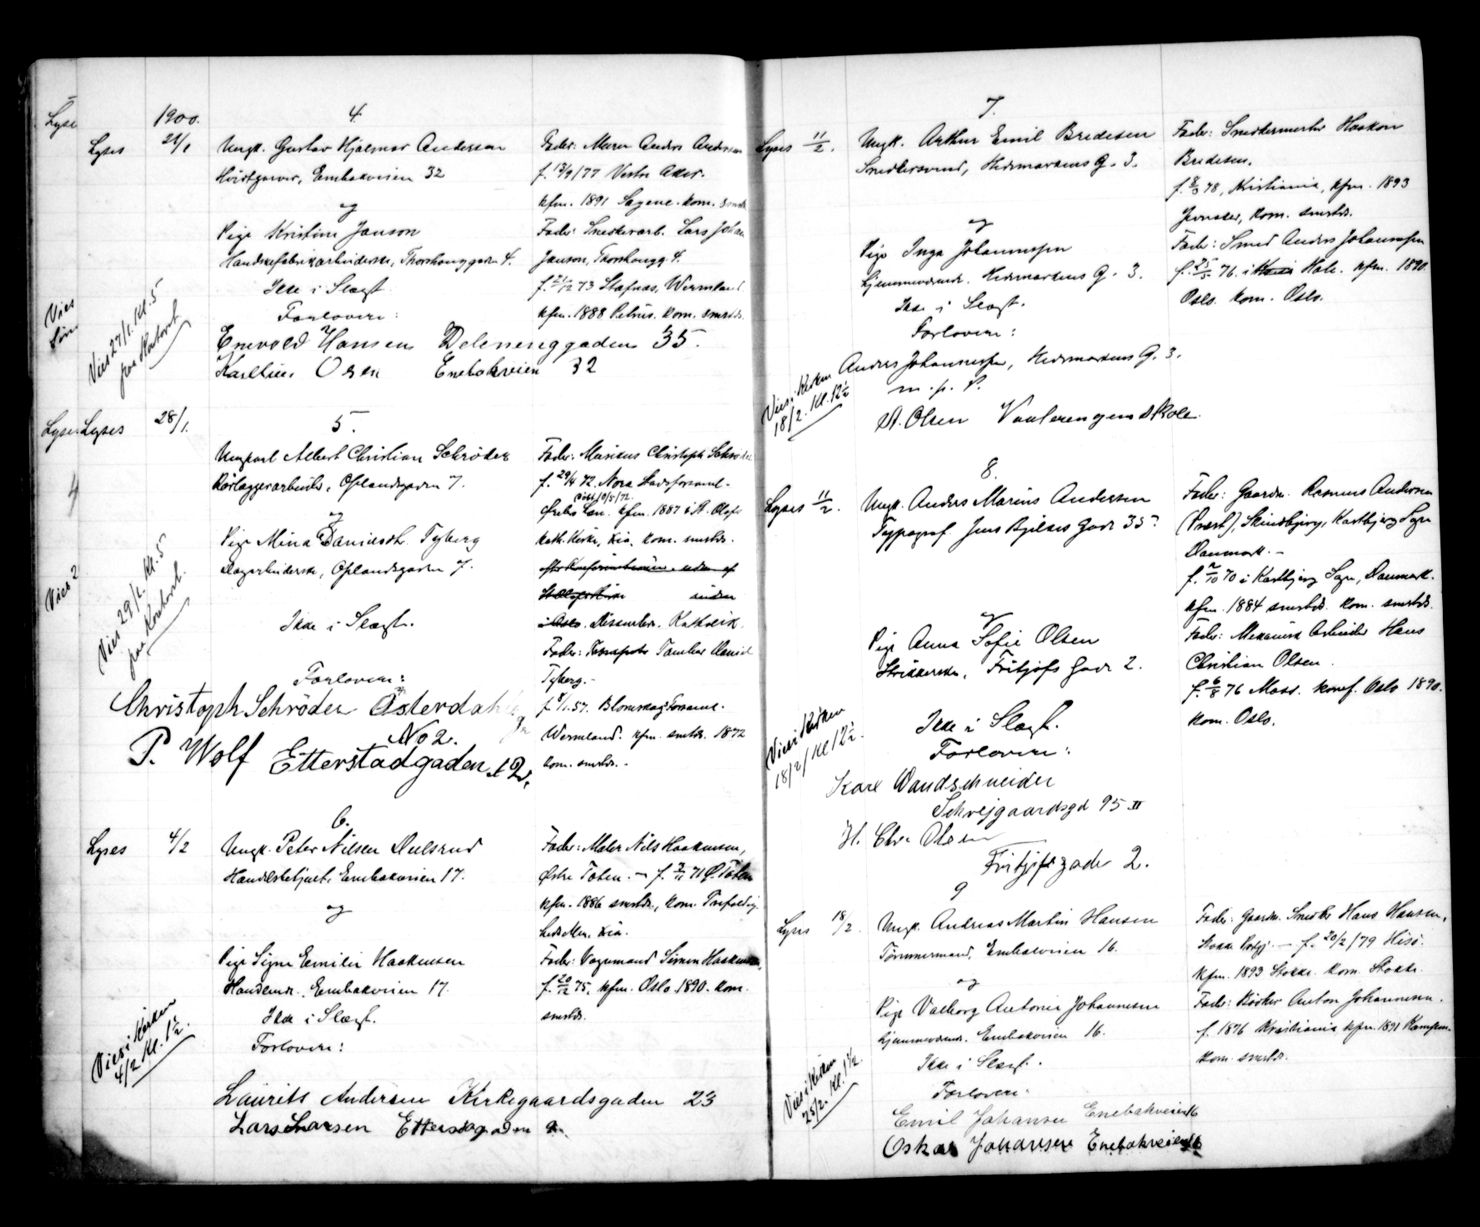 Lyse
1900.
4.
Lyses
21/1
Ungk. Gustav Hjalmar Anderson
Hvidtgarver, Enebakveien 32
og
Pige Kristine Janson
Handskefabrikarbeiderske, Thorshauggaden 4.
Ikke i Slægt.
Forlovere:
Enevold Hansen Delenenggaden 35.
Olsen Enebakveien 32
Fader: Murer Anders Anderson
f. 13/9/77 Vestre Aker.
kfm. 1891 Sagene. kom.
Fader: Snedkerarb. Lars Johan
Janson, Thorshaugg. 4.
f. 21/12 73 Stafnäs, Wermland
kfm. 1888 Petrus. kom. smstds.
Vies 27/1. Kl. 5
fra Kontoret
Vies
5.
Lyses Lyses 28/1.
Ungkarl Albert Christian Schrøder
Rørlæggerarbeider, Oplandsgaden 7.
og
Pige Mina Danielsdt. Tyberg
Oplandsgaden 7.
Ikke i Slægt.
Forlovere:
Christoph Schröder Østerdalsg
No 2.
P. Wolf Etterstadgaden 12.
Fader: Marinus Christoph Schrøder
f. 29/4 72. Nora Landsforsaml.
Ørebro Len. kfm. 1887 i St. Olafs
kath. Kirke, Kia. kom. smstds.
Dissenter. Katholik.
Fader: Tambur Daniel
Tyberg.
f. 8/1. 57. Blomskog Forsaml.
Wermland. kfm. smstds. 1872
kom. smstds.
Vies 29/1. Kl. 5
fra Kontoret.
Vies 2
6.
Lyses 4/2
Ungk. Peter Nilsen Dulsrud
Handelsbetjent, Enebakveien 17.
og
Pige Signe Emilie Haakensen
Enebakveien 17.
Ikke i Slægt.
Forlovere:
Laurits Andersen Kirkegaardsgaden 23
Lars Larsen
Fader: Maler Nils Haakensen,
Østre Toten. f. 71 Ø. Toten
kfm. 1886 smstds, kom. Trefoldig-
heds Men. Kia.
Fader: Vognmand Simen Haakensen,
f. 20/12 75. kfm. Oslo 1890. kom.
smstds.
Vies i Kirken
4/2. Kl. 1½.
7.
Lyses 11/2.
Ungk. Arthur Emil Bredesen
Snedkersvend, Hedmarkens G. 3.
og
Pige Inga Johannessen
Hjemmeværende. Hedmarkens G. 3.
Ikke i Slægt.
Forlovere:
Anders Johannessen, Hedmarkens G. 3.
m. p. P.
A. Olsen Vaalerengens skole.
Fader: Snedkermester Haakon
Bredesen.
78, Kristiania, kfm. 1893
Jevnaker, kom. smstds.
Fader: Smed Anders Johannessen
f. 25/5 76. i Hole. kfm. 1890.
Oslo. kom. Oslo.
Vies i Kirken
18/2. Kl. 12½
8.
Lyses 11/2.
Ungk. Anders Marius Andersen
Typograf Jens Bjelkes Gade 35.
og
Pige Anna Sofie Olsen
Strikkerske, Fritjofs Gade 2.
Ikke i Slægt.
Forlovere:
Karl Wandschneider
Schvejgaardsgd 95 II
H. Chr. Olsen
Fritjofsgade 2.
Fader: Gaardm. Rasmus Andersen
Skindbjerg, Karlbjerg Sogn
Danmark.
70 i Karlbjerg Sogn, Danmark.
kfm. 1884 smstds. kom. smstds.
Fader: Mekanisk Arbeider Hans
Christian Olsen.
f. 6/8 76 Moss. konf. Oslo 1890.
kom. Oslo.
Vies i Kirken
18/2 / Kl 12½.
9
Lyses 18/2
Ungk. Andreas Martin Hansen
Tømmermand, Enebakveien 16.
og
Pige Valborg Antonie Johannesen
Hjemmeværende. Enebakveien 16.
Ikke i Slægt.
Forlovere:
Emil Johansen Enebakveien 16
Oskar Johansen Enebakveien 16
Fader: Gaardm. Snedker Hans Hansen,
f. 20/2/79 Hisø.
kfm. 1893 Stokke. kom. Stokke
Fader: Anton Johannesen.
f. 1876 Kristiania kfm. 1891 Kampen.
kom. smstds.
Vies i Kirken
25/2. Kl. 1½.